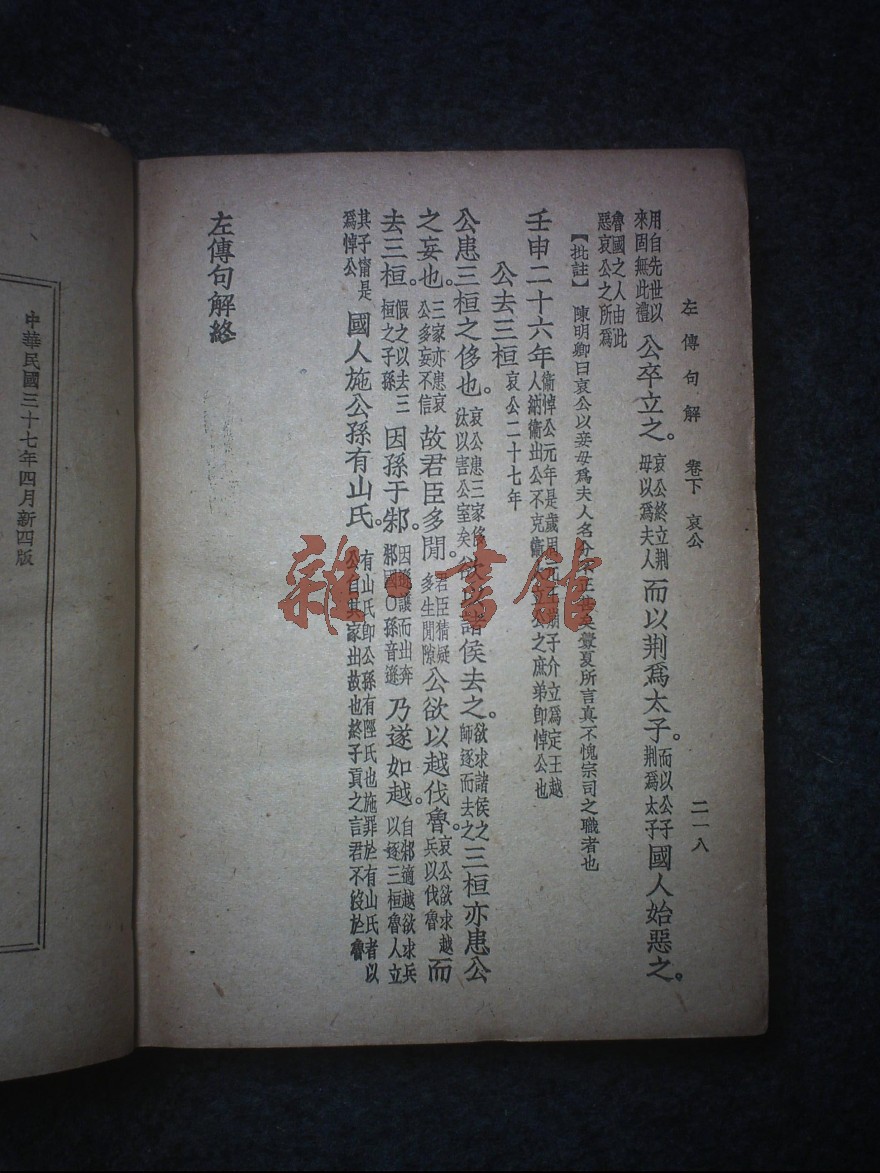 左傳句解 卷下 哀公 二一八
用自先世以來固無此禮 公卒立之。哀公終立荆毋以爲夫人 而以荆爲太子。而以公子荆爲太子 國人始惡之。
魯國之人由此惡哀公之所爲
【批註】 陳明卿曰哀公以妾母爲夫人名分 夏所言真不愧宗司之職者也
壬申二十六年 衛悼公元年是歲周 子介立爲定王越人納衛出公不克衛 公之庶弟卽悼公也
公去三桓 哀公二十七年
公患三桓之侈也。哀公患三家侈汰以害公室矣 欲以諸侯去之。欲求諸侯之師逐而去之 三桓亦患公
之妄也。三家亦患哀公多妄不信 故君臣多閒。君臣猜疑多生閒隙 公欲以越伐魯。哀公欲求越兵以伐魯 而
去三桓。假之以去三桓之子孫 因孫于邾。因遜讓而出奔邾國〇孫音遜 乃遂如越。自邾適越欲求兵以逐三桓魯人立
其子甯是爲悼公 國人施公孫有山氏。有山氏卽公孫有陘氏也施罪於有山氏者以公自其家出故也終子貢之言君不沒於魯
左傳句解終
中華民國三十七年四月新四版
雜·書館